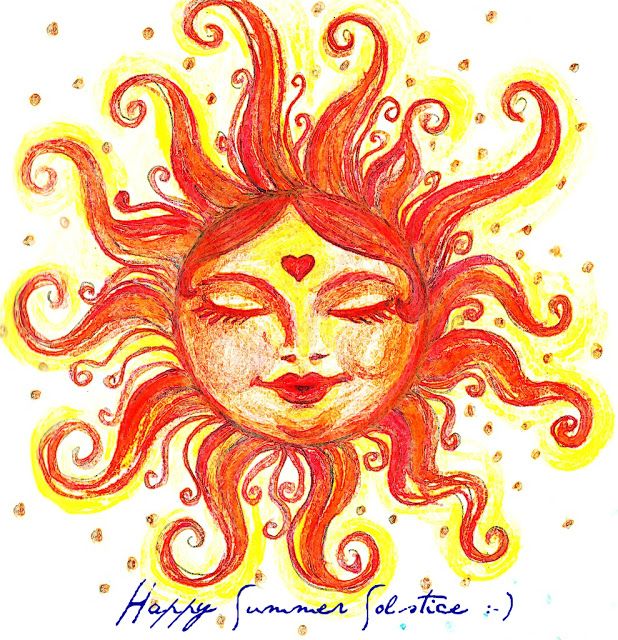 Happy Summer Solstice :-)